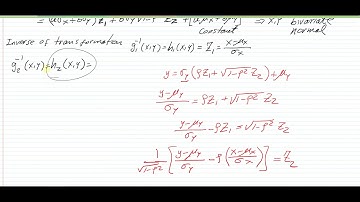 (aσx + bσy) Z1 + bσy √1-ρ² Z2 + [aμx + bμy] ⇒ X,Y bivariate
constant normal
Inverse of transformation g1⁻¹(x,y) = h1(x,y) = Z1 = (x-μx)/σx
g2⁻¹(x,y) = h2(x,y) =
y = σy (ρZ1 + √1-ρ² Z2) + μy
(y-μy)/σy = ρZ1 + √1-ρ² Z2
(y-μy)/σy - ρZ1 = √1-ρ² Z2
1/√1-ρ² [(y-μy)/σy - ρ((x-μx)/σx)] = Z2